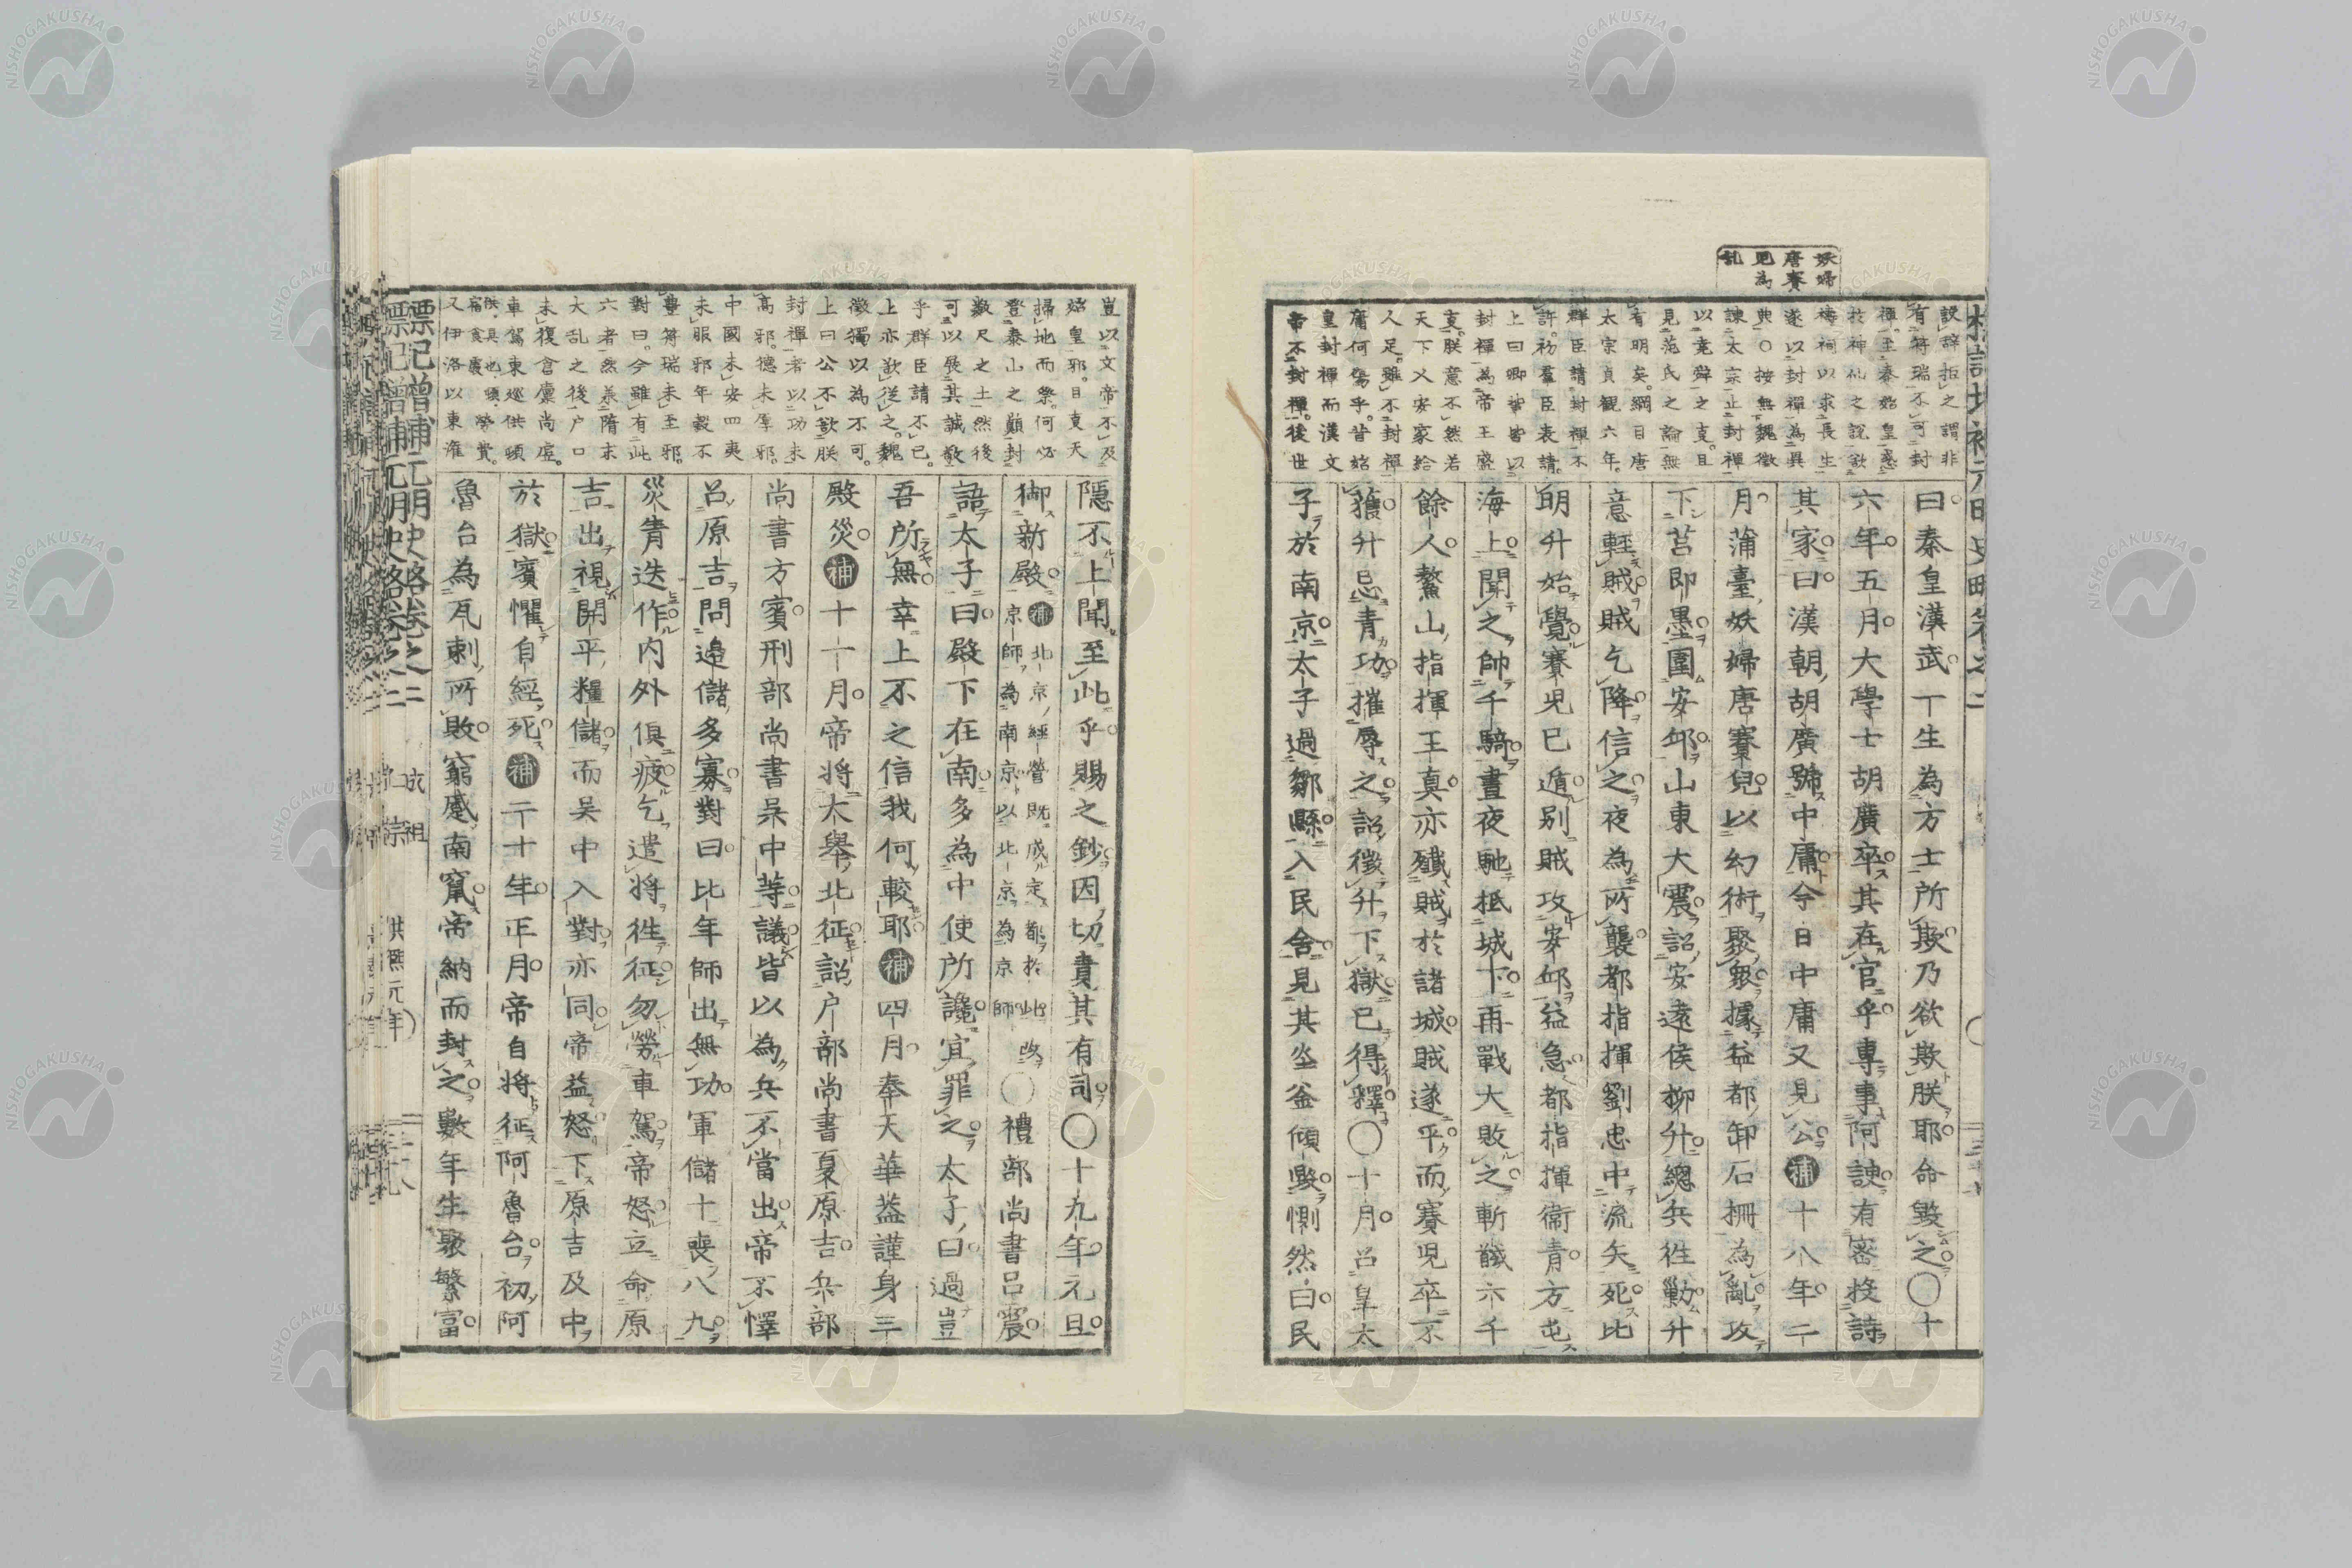 妖婦
唐賽
兒為
乱
説辭拒之謂非
有符瑞不可封
禪至秦始皇惑
於神仙之説欲
禱祠以求長生
遂以封禪為異
典〇按無魏徴
諫太宗止封禪
見范氏之論無
以堯舜之事且
有明矣綱目唐
太宗貞観六年
群臣請封禪不
許初羣臣表請
上曰卿皆以
封禪為帝王盛
事朕意不然若
天下乂安家給
人足雖不封禪
庸何傷乎昔始
皇封禪而漢文
帝不封禪後世
曰秦皇漢武一生為方士所欺乃欲欺朕耶命毀之〇十
六年五月大學士胡廣卒其在官乎專事阿諛有密投詩
其家曰漢朝胡廣號中庸今日中庸又見公補十八年二
月蒲臺妖婦唐賽兒以幻術聚衆據益都卸石柵為亂攻
下莒即墨圍安邱山東大震詔安遠侯柳升總兵徃勦升
意輕賊賊乞降信之夜為所襲都指揮劉忠中流矢死比
明升始覺賽兒已遁别賊攻安邱益急都指揮衞青方屯
海上聞之帥千騎晝夜馳抵城下再戰大敗之斬馘六千
餘人鰲山指揮王真亦殲賊於諸城賊遂平而賽兒卒不
獲升忌青功摧辱之詔徴升下獄已得釋〇十月召皇太
子於南京太子過鄒縣入民舎見其坐釜傾毀惻然曰民
豈以文帝不及
始皇邪且事天
掃地而祭何必
登泰山之顛封
數尺之土然後
可以展其誠敬
乎群臣請不已
上亦欲從之魏
徴獨以為不可
上曰公不欲朕
封禪者以功未
髙邪德未厚邪
中國未安四夷
未服邪年穀不
豊符瑞未至邪
對曰今雖有此
六者然羨隋末
大乱之後户口
未復倉廩尚虗
車駕東巡供頓
供具也頓
宿食處勞費
又伊洛以東淮
隱不上聞至此乎賜之鈔因切責其有司〇十九年元旦
御新殿補北京經營既成定都於此改
京師為南京以北京為京師〇禮部尚書呂震
語太子曰殿下在南多為中使所讒宜罪之太子曰過豈
吾所無幸上不之信我何較耶補四月奉天華蓋謹身三
殿災補十一月帝將大舉北征詔户部尚書夏原吉兵部
尚書方賓刑部尚書吴中等議皆以為兵不當出帝不懌
召原吉問邉儲多寡對曰比年師出無功軍儲十喪八九
災眚迭作内外俱疲乞遣将徃征勿勞車駕帝怒立命原
吉出視開平糧儲而吴中入對亦同帝益怒下原吉及中
於獄賓懼自經死補二十年正月帝自將征阿魯台初阿
魯台為瓦剌所敗窮蹙南竄帝納而封之數年生聚繁富
標記増補元明史略巻之二 成祖 仁宗 洪熙元年
NISHOGAKUSHA